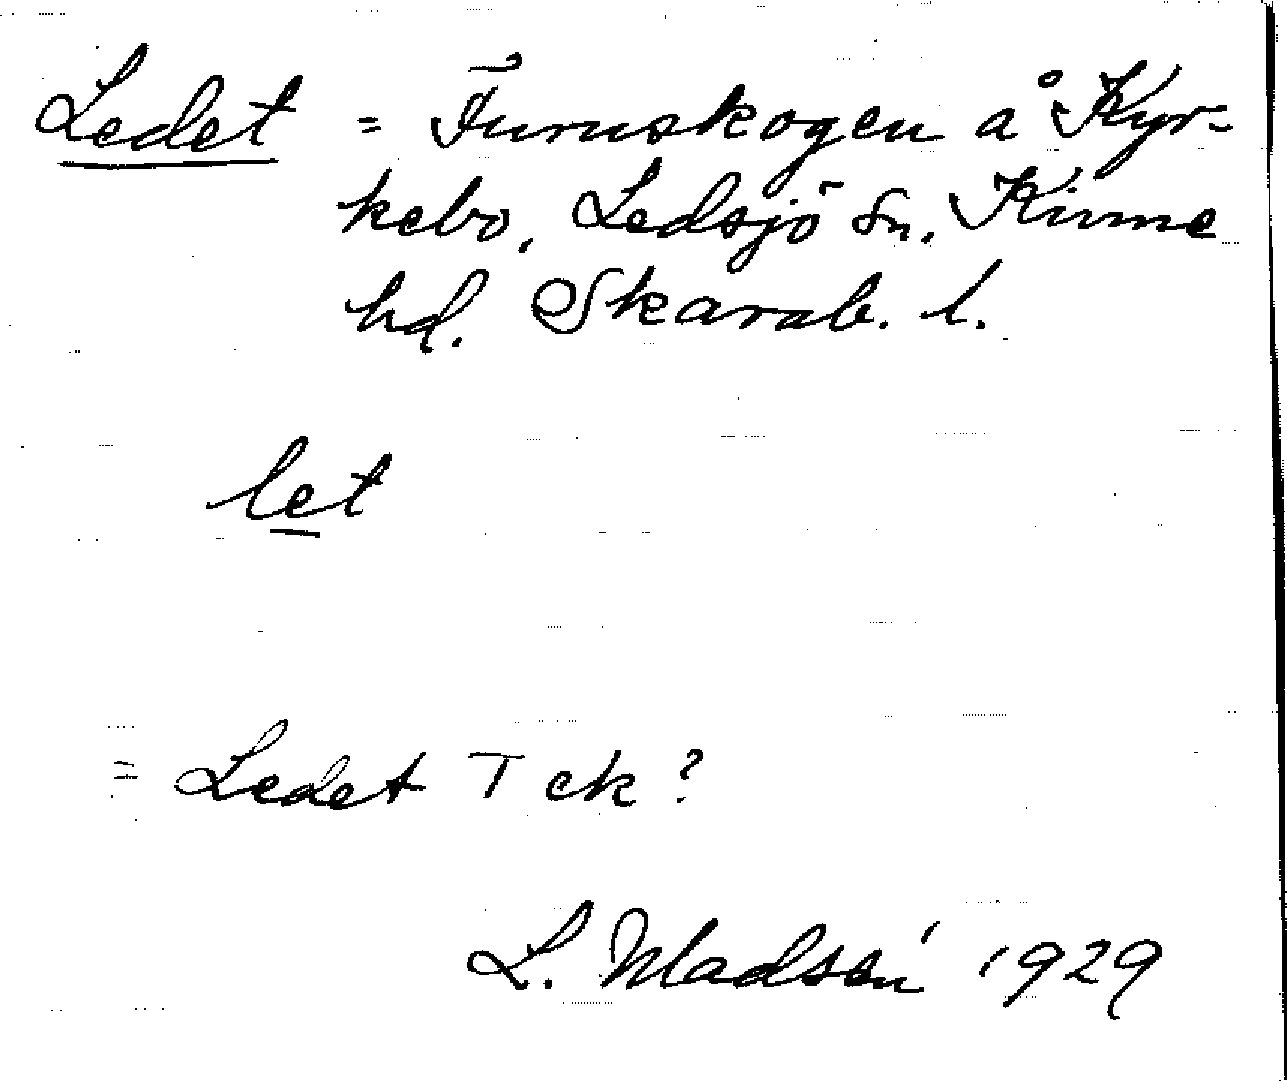 Ledet = Furuskogen å Kyr-
kebo, Ledsjö sn. Kinne
hd. Skarab. l.
let
= Ledet T ek?
L. Madsén 1929